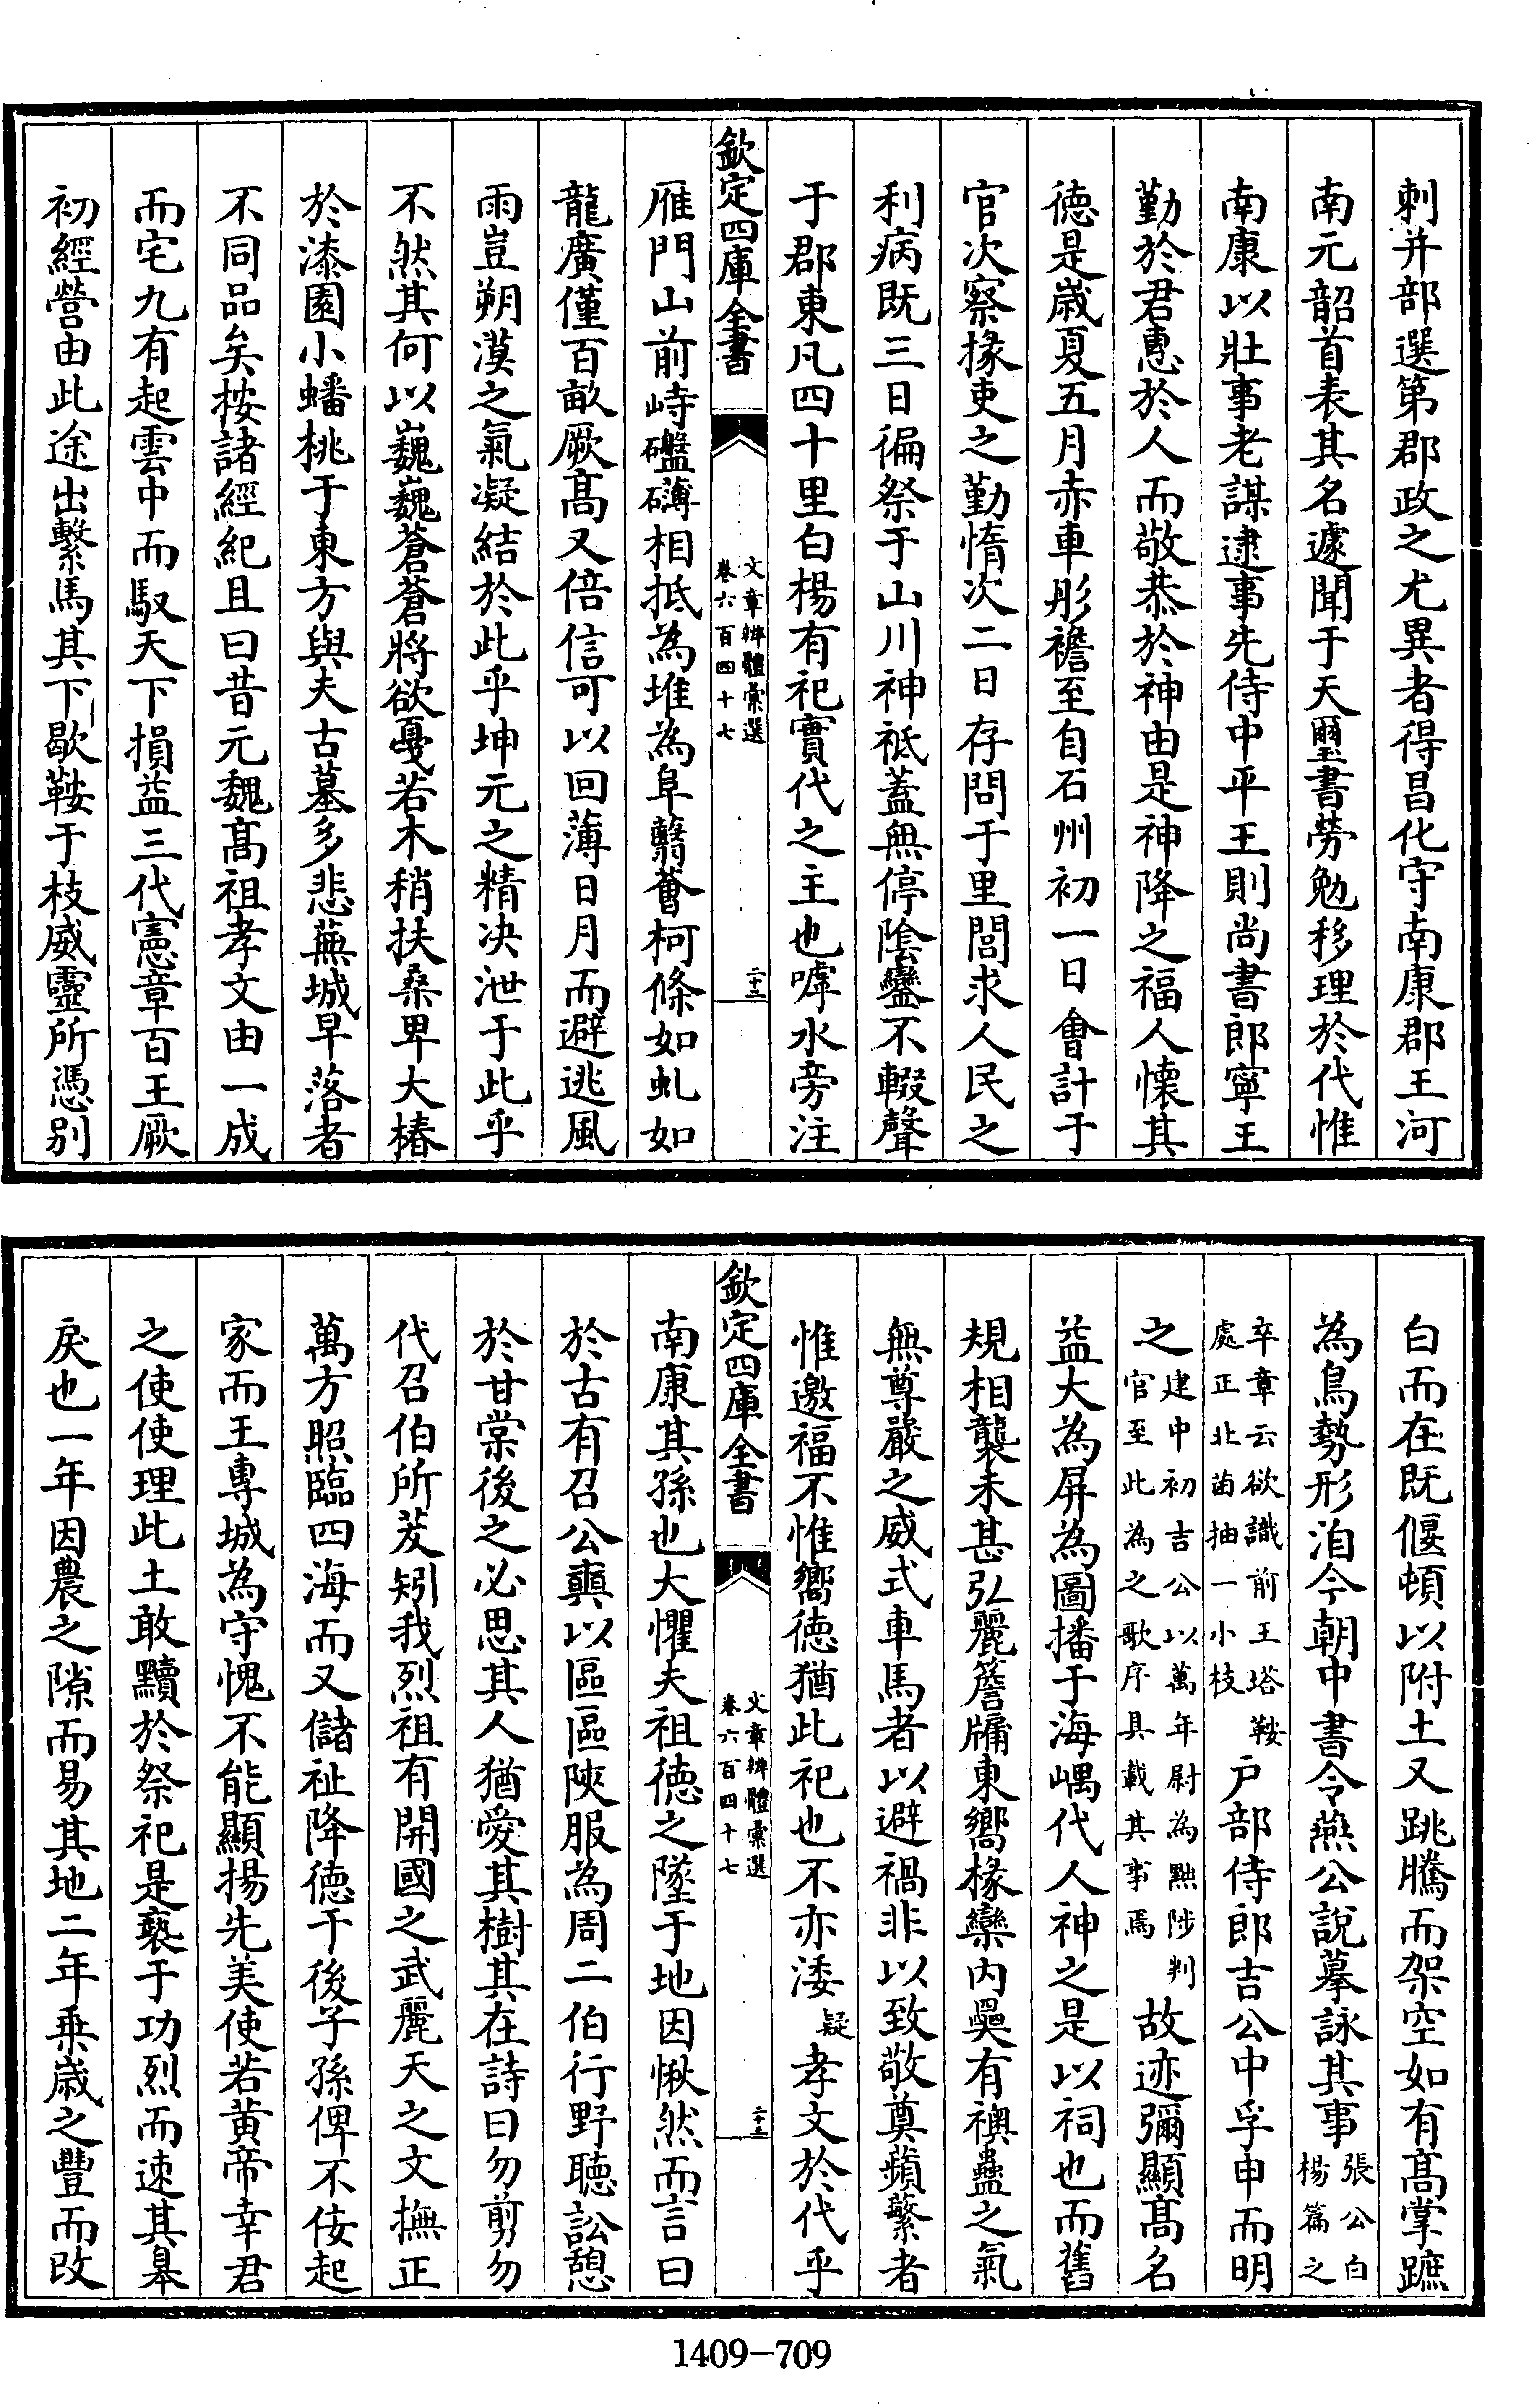 刺并部選第郡政之尤異者得昌化守南康郡王河
南元韶首表其名遽聞于天璽書勞勉移理於代惟
南康以壯事老謀逮事先侍中平王則尚書郎寧王
勤於君惠於人而敬恭於神由是神降之福人懷其
徳是歳夏五月赤車彤襜至自石州初一日會計于
官次察掾吏之勤惰次二日存問于里閭求人民之
利病既三日徧祭于山川神祗蓋無停陰鑾不輟聲
于郡東凡四十里白楊有祀實代之主也嘑水旁注
欽定四庫全書
文章辨體彙選
卷六百四十七
二十二
雁門山前峙礚礴相抵為堆為阜翳薈柯條如虬如
龍廣僅百畝厥髙又倍信可以回薄日月而避逃風
雨豈朔漠之氣凝結於此乎坤元之精決泄于此乎
不然其何以巍巍蒼蒼將欲戞若木稍扶桑卑大椿
於漆園小蟠桃于東方與夫古墓多悲蕪城早落者
不同品矣按諸經紀且曰昔元魏髙祖孝文由一成
而宅九有起雲中而馭天下損益三代憲章百王厥
初經營由此途出繫馬其下歇鞍于枝威靈所憑别
白而在既偃頓以附土又跳騰而架空如有髙掌蹠
為鳥勢形洎今朝中書令燕公説摹詠其事張公白
楊篇之
卒章云欲識前王塔鞍
處正北菌抽一小枝
户部侍郎吉公中孚申而明
之
建中初吉公以萬年尉為黜陟判
官至此為之歌序具載其事焉
故迹彌顯髙名
益大為屏為圖播于海嵎代人神之是以祠也而舊
規相襲未甚弘麗簷牖東嚮椽欒内奰有襖蠱之氣
無尊嚴之威式車馬者以避禍非以致敬奠蘋蘩者
惟邀福不惟嚮徳猶此祀也不亦淒疑孝文於代乎
欽定四庫全書
文章辨體彙選
卷六百四十七
二十三
南康其孫也大懼夫祖徳之墜于地因愀然而言曰
於古有召公奭以區區陜服為周二伯行野聽訟憩
於甘棠後之必思其人猶愛其樹其在詩曰勿剪勿
代召伯所茇矧我烈祖有開國之武麗天之文撫正
萬方照臨四海而又儲祉降徳于後子孫俾不佞起
家而王專城為守愧不能顯揚先美使若黄帝幸君
之使使理此土敢黷於祭祀是褻于功烈而速其辠
戾也一年因農之隙而易其地二年乗歳之豐而改
1409-709